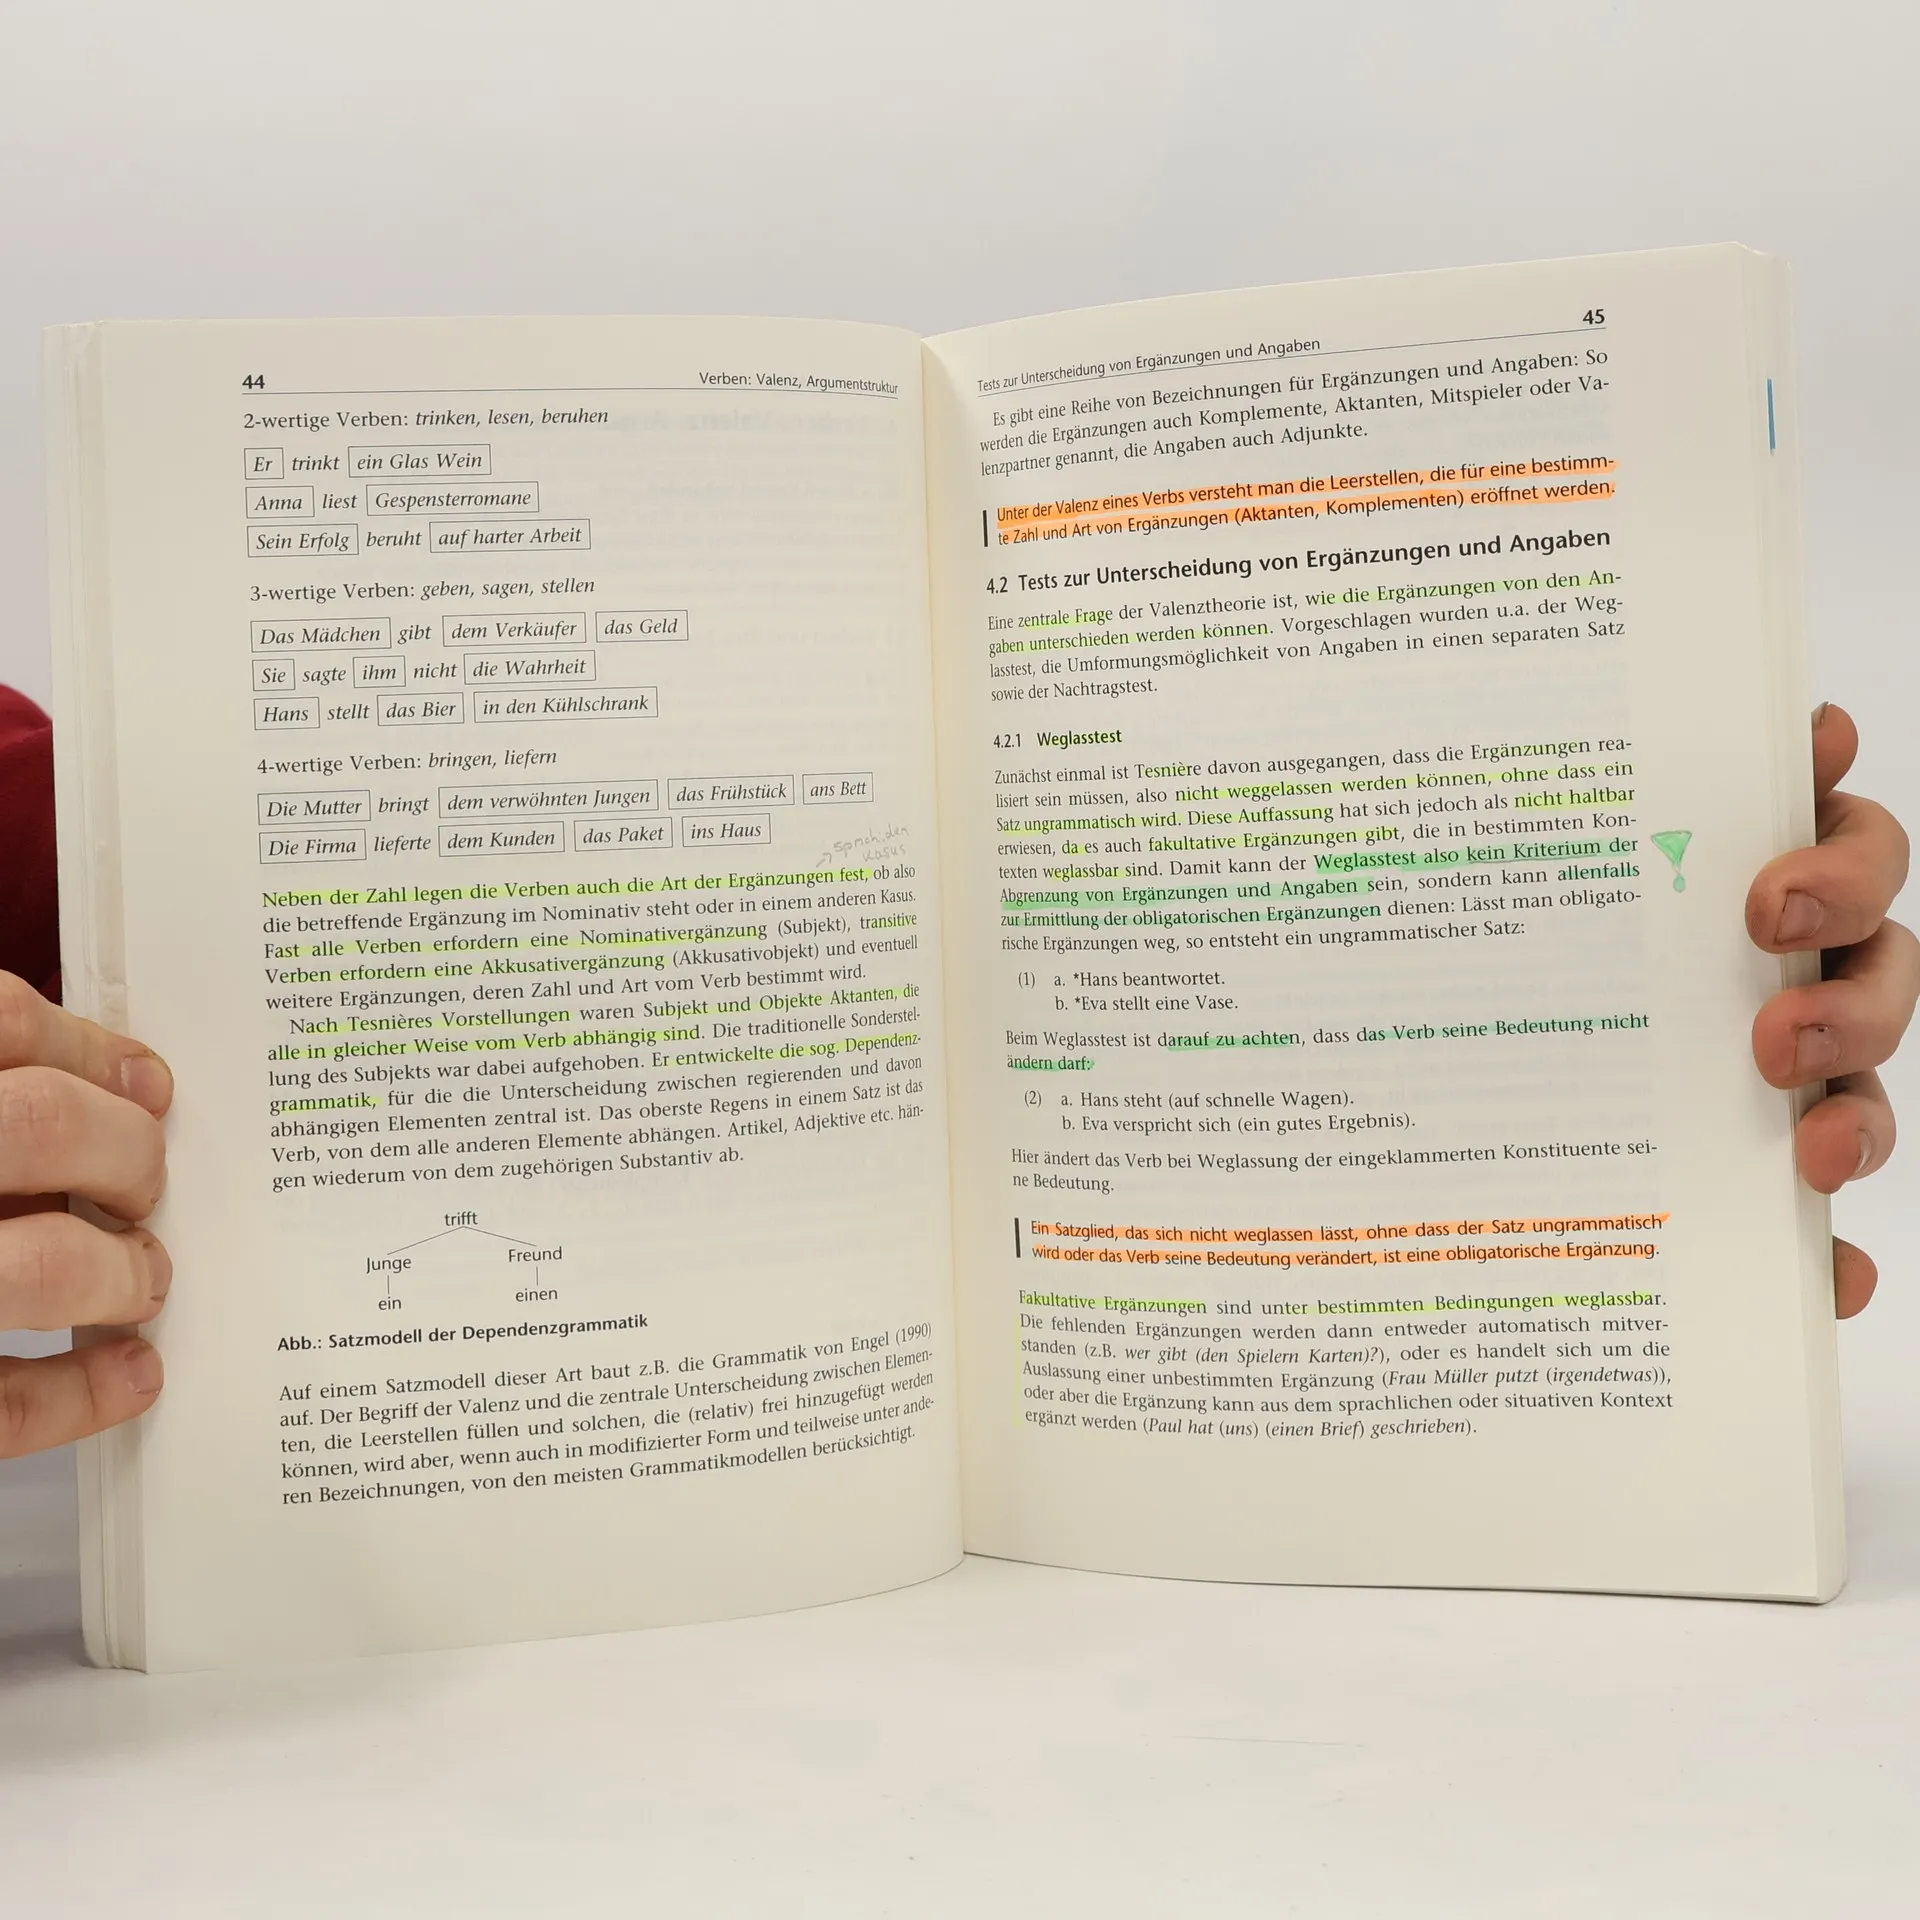 44
Verben: Valenz, Argumentstruktur
2-wertige Verben: trinken, lesen, beruhen
Er trinkt ein Glas Wein
Anna liest Gespensterromane
Sein Erfolg beruht auf harter Arbeit
3-wertige Verben: geben, sagen, stellen
Das Mädchen gibt dem Verkäufer das Geld
Sie sagte ihm nicht die Wahrheit
Hans stellt das Bier in den Kühlschrank
4-wertige Verben: bringen, liefern
Die Mutter bringt dem verwöhnten Jungen das Frühstück ans Bett
Die Firma lieferte dem Kunden das Paket ins Haus
→ sprich, den
Kasus
Neben der Zahl legen die Verben auch die Art der Ergänzungen fest, ob also
die betreffende Ergänzung im Nominativ steht oder in einem anderen Kasus.
Fast alle Verben erfordern eine Nominativergänzung (Subjekt), transitive
Verben erfordern eine Akkusativergänzung (Akkusativobjekt) und eventuell
weitere Ergänzungen, deren Zahl und Art vom Verb bestimmt wird.
Nach Tesnières Vorstellungen waren Subjekt und Objekte Aktanten, die
alle in gleicher Weise vom Verb abhängig sind. Die traditionelle Sonderstel-
lung des Subjekts war dabei aufgehoben. Er entwickelte die sog. Dependenz-
grammatik, für die die Unterscheidung zwischen regierenden und davon
abhängigen Elementen zentral ist. Das oberste Regens in einem Satz ist das
Verb, von dem alle anderen Elemente abhängen. Artikel, Adjektive etc. hän-
gen wiederum von dem zugehörigen Substantiv ab.
trifft
Junge Freund
ein einen
Abb.: Satzmodell der Dependenzgrammatik
Auf einem Satzmodell dieser Art baut z.B. die Grammatik von Engel (1990)
auf. Der Begriff der Valenz und die zentrale Unterscheidung zwischen Elemen-
ten, die Leerstellen füllen und solchen, die (relativ) frei hinzugefügt werden
können, wird aber, wenn auch in modifizierter Form und teilweise unter ande-
ren Bezeichnungen, von den meisten Grammatikmodellen berücksichtigt.
Tests zur Unterscheidung von Ergänzungen und Angaben
45
Es gibt eine Reihe von Bezeichnungen für Ergänzungen und Angaben: So
werden die Ergänzungen auch Komplemente, Aktanten, Mitspieler oder Va-
lenzpartner genannt, die Angaben auch Adjunkte.
Unter der Valenz eines Verbs versteht man die Leerstellen, die für eine bestimm-
te Zahl und Art von Ergänzungen (Aktanten, Komplementen) eröffnet werden.
4.2 Tests zur Unterscheidung von Ergänzungen und Angaben
Eine zentrale Frage der Valenztheorie ist, wie die Ergänzungen von den An-
gaben unterschieden werden können. Vorgeschlagen wurden u.a. der Weg-
lasstest, die Umformungsmöglichkeit von Angaben in einen separaten Satz
sowie der Nachtragstest.
4.2.1 Weglasstest
Zunächst einmal ist Tesnière davon ausgegangen, dass die Ergänzungen rea-
lisiert sein müssen, also nicht weggelassen werden können, ohne dass ein
Satz ungrammatisch wird. Diese Auffassung hat sich jedoch als nicht haltbar
erwiesen, da es auch fakultative Ergänzungen gibt, die in bestimmten Kon-
texten weglassbar sind. Damit kann der Weglasstest also kein Kriterium der
Abgrenzung von Ergänzungen und Angaben sein, sondern kann allenfalls
zur Ermittlung der obligatorischen Ergänzungen dienen: Lässt man obligato-
rische Ergänzungen weg, so entsteht ein ungrammatischer Satz:
(1) a. *Hans beantwortet.
b. *Eva stellt eine Vase.
Beim Weglasstest ist darauf zu achten, dass das Verb seine Bedeutung nicht
ändern darf:
(2) a. Hans steht (auf schnelle Wagen).
b. Eva verspricht sich (ein gutes Ergebnis).
Hier ändert das Verb bei Weglassung der eingeklammerten Konstituente sei-
ne Bedeutung.
Ein Satzglied, das sich nicht weglassen lässt, ohne dass der Satz ungrammatisch
wird oder das Verb seine Bedeutung verändert, ist eine obligatorische Ergänzung.
Fakultative Ergänzungen sind unter bestimmten Bedingungen weglassbar.
Die fehlenden Ergänzungen werden dann entweder automatisch mitver-
standen (z.B. wer gibt (den Spielern Karten)?), oder es handelt sich um die
Auslassung einer unbestimmten Ergänzung (Frau Müller putzt (irgendetwas)),
oder aber die Ergänzung kann aus dem sprachlichen oder situativen Kontext
ergänzt werden (Paul hat (uns) (einen Brief) geschrieben).